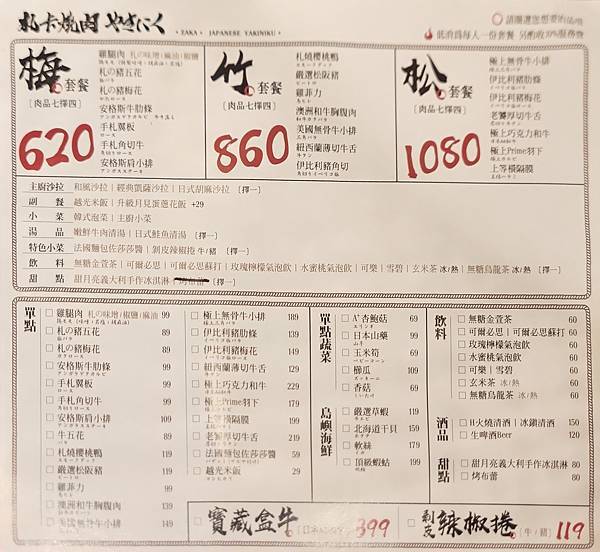 札卡燒肉 やきにく
• ZAKA • JAPANESE YAKINIKU •
低消為每人一份套餐 另酌收10%服務費
梅 套餐
〔肉品七擇四〕
620
雞腿肉 札の味噌/椒鹽/麻油
札の豬五花
札の豬梅花
安格斯牛肋條
手札翼板
手札角切牛
安格斯肩小排
竹 套餐
〔肉品七擇四〕
860
札燒櫻桃鴨
嚴選松阪豬
雞菲力
澳洲和牛胸腹肉
美國無骨牛小排
紐西蘭薄切牛舌
伊比利豬角切
松 套餐
〔肉品七擇四〕
1080
極上無骨牛小排
伊比利豬肋條
伊比利豬梅花
老饕厚切牛舌
極上巧克力和牛
極上Prime羽下
上等橫隔膜
主廚沙拉 和風沙拉 | 經典凱薩沙拉 | 日式胡麻沙拉〔擇一〕
副餐 越光米飯 | 升級月見蛋蔥花飯 +29
小菜 韓式泡菜 | 主廚小菜
湯品 嫩鮮牛肉清湯 | 日式鮭魚清湯〔擇一〕
特色小菜 法國麵包佐莎莎醬 | 剝皮辣椒捲 牛/豬〔擇一〕
飲料 無糖金萱茶 | 可爾必思 | 可爾必思蘇打 | 玫瑰檸檬氣泡飲 | 水蜜桃氣泡飲 | 可樂 | 雪碧 | 玄米茶 冰/熱 | 無糖烏龍茶 冰/熱〔擇一〕
甜點 甜月亮義大利手作冰淇淋 | 烤布蕾〔擇一〕
單點
雞腿肉 札の味噌/椒鹽/麻油 99
札の豬五花 89
札の豬梅花 89
安格斯牛肋條 99
手札翼板 99
手札角切牛 99
安格斯肩小排 109
牛五花 89
札燒櫻桃鴨 119
嚴選松阪豬 119
雞菲力 99
澳洲和牛胸腹肉 139
美國無骨牛小排 149
極上無骨牛小排 189
伊比利豬肋條 139
伊比利豬梅花 149
紐西蘭薄切牛舌 129
極上巧克力和牛 229
極上Prime羽下 179
上等橫隔膜 159
老饕厚切牛舌 199
法國麵包佐莎莎醬 59
越光米飯 29
單點蔬菜
A+杏鮑菇 69
日本山藥 99
玉米筍 69
櫛瓜 109
香菇 69
島嶼海鮮
嚴選草蝦 119
北海道干貝 159
軟絲 119
頂級蝦蛄 199
飲料
無糖金萱茶 60
可爾必思 | 可爾必思蘇打 60
玫瑰檸檬氣泡飲 60
水蜜桃氣泡飲 60
可樂 | 雪碧 60
玄米茶 冰/熱 60
無糖烏龍茶 冰/熱 60
酒品
日火燒清酒 | 冰鎮清酒 150
生啤酒Beer 120
甜點
甜月亮義大利手作冰淇淋 80
烤布蕾 80
寶藏盒牛 399
剝皮辣椒捲〔牛/豬〕119